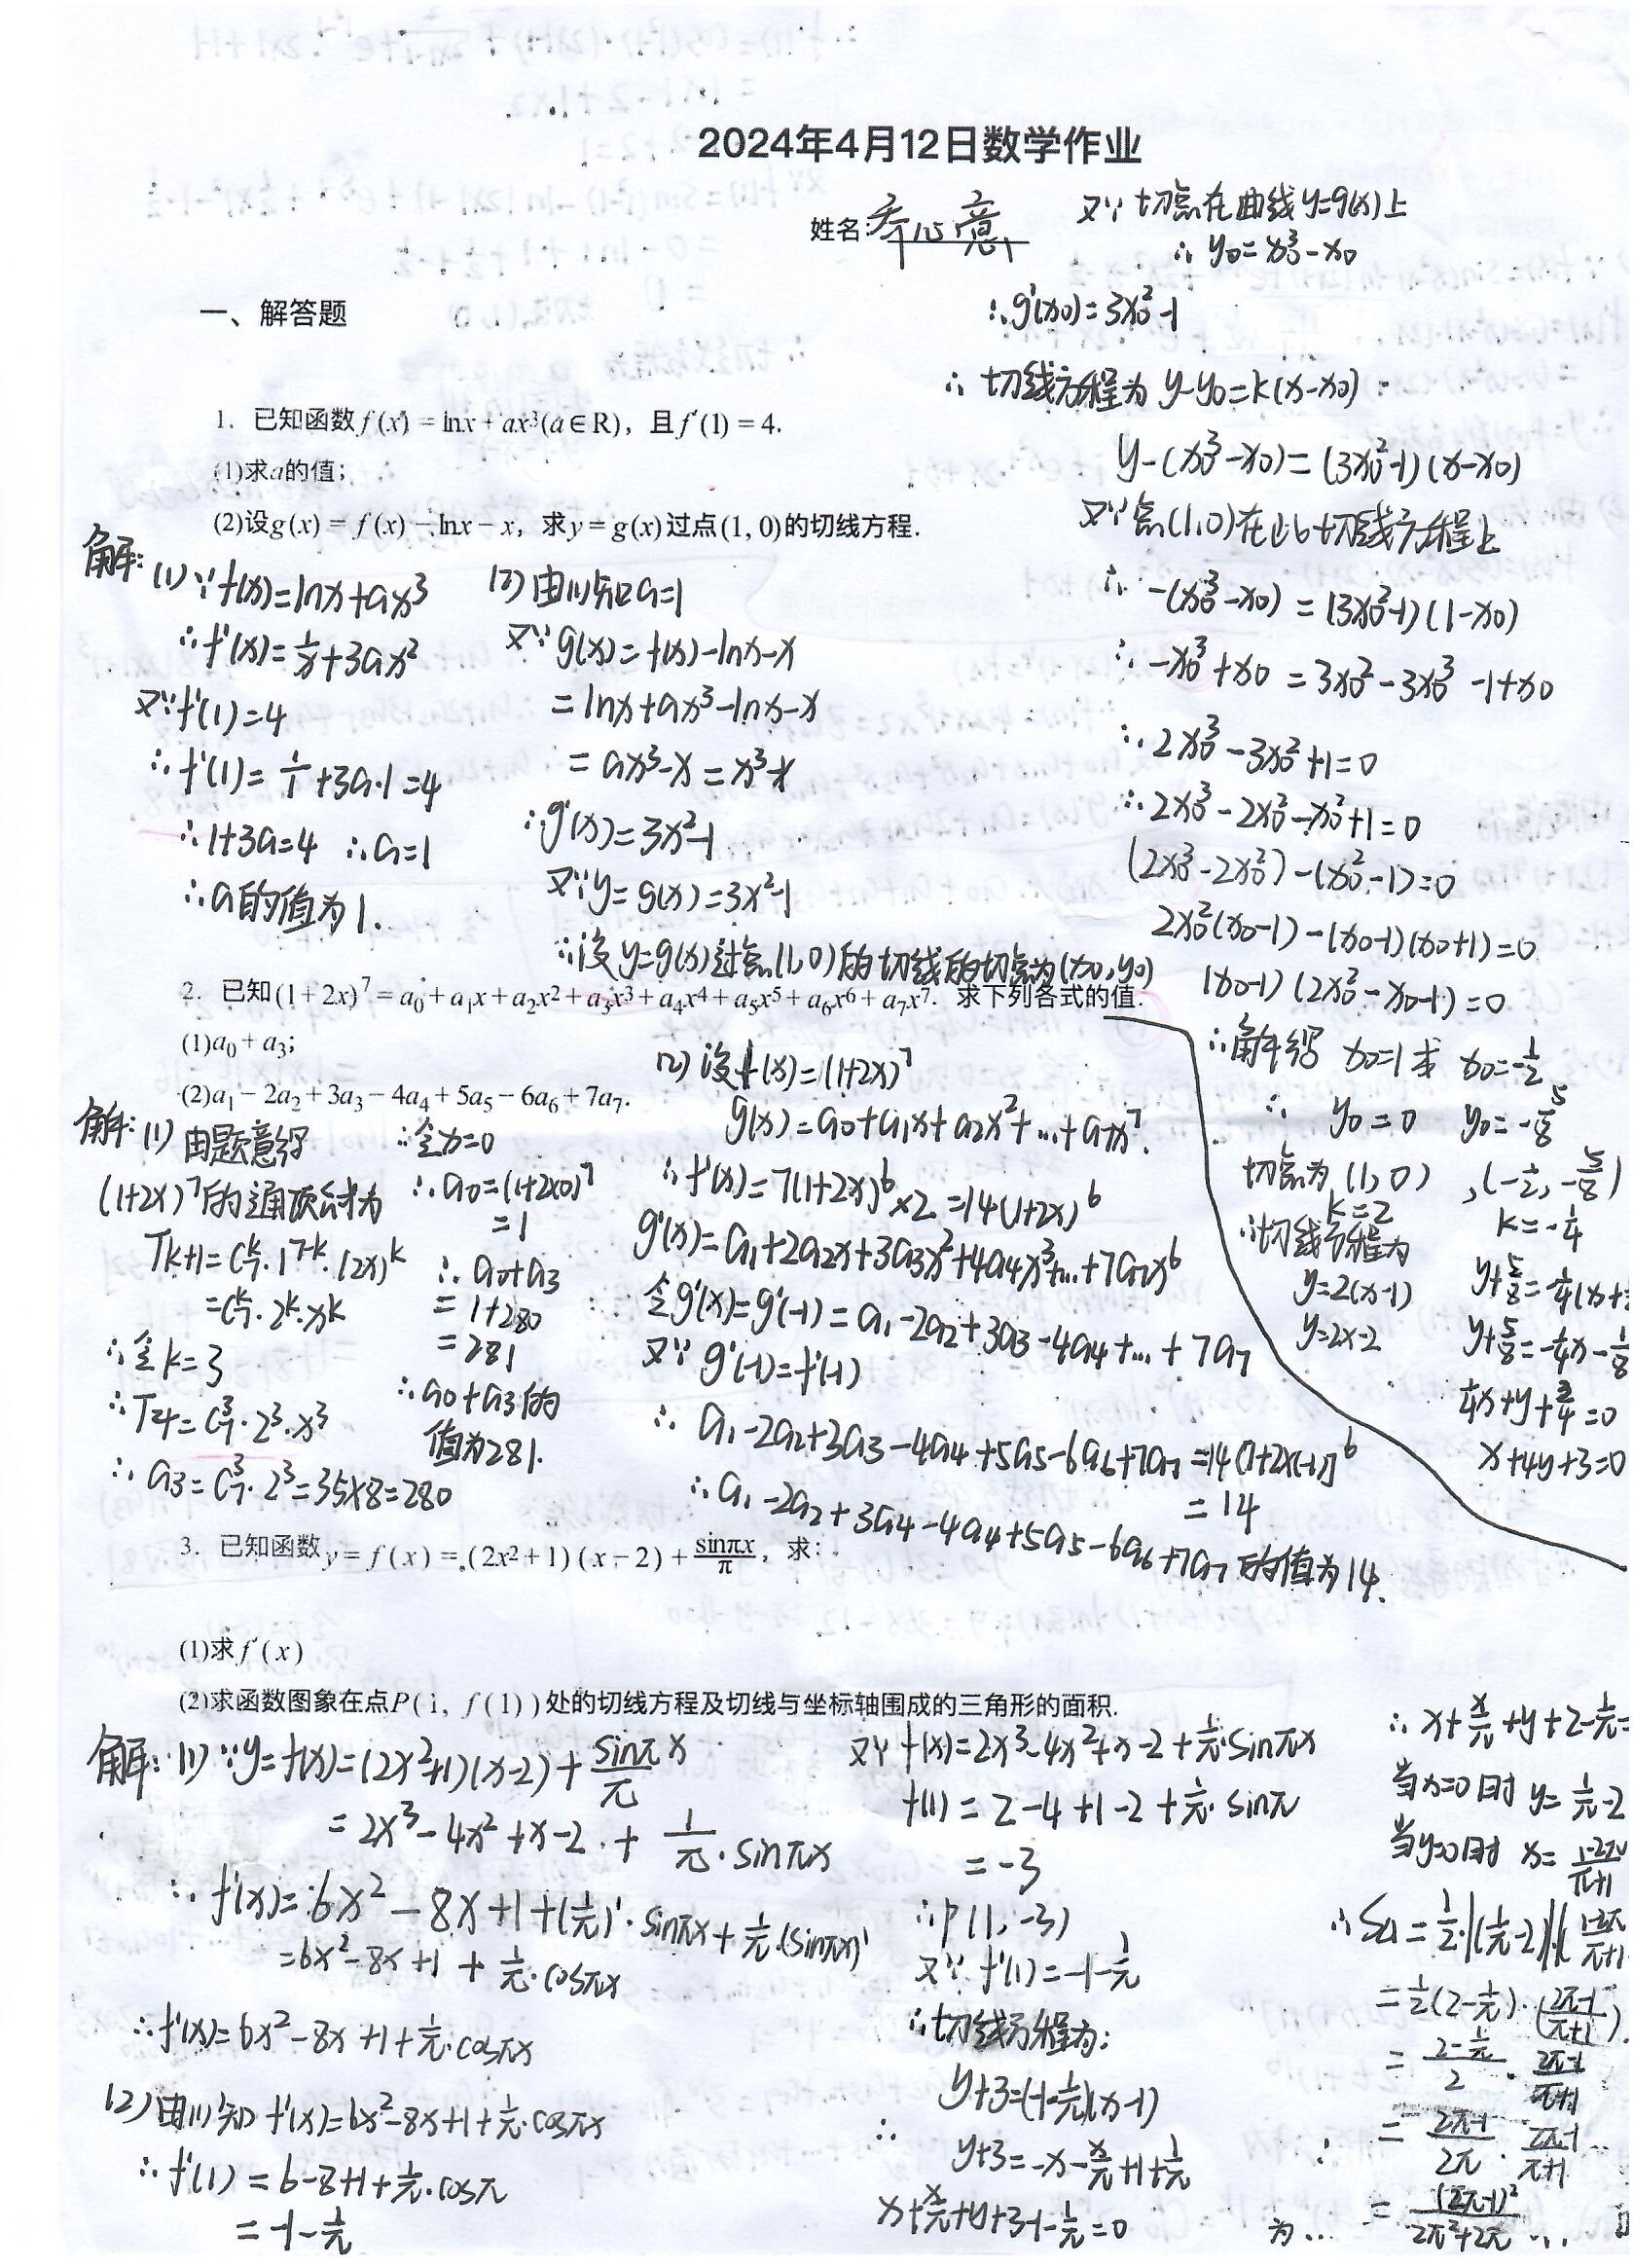 2024年4月12日数学作业
姓名:乔心意
一、解答题
1. 已知函数f(x)=lnx+ax³(a∈R)，且f′(1)=4.
(1)求a的值;
(2)设g(x)=f(x)-lnx-x，求y=g(x)过点(1,0)的切线方程.
解:(1)∵f(x)=lnx+ax³
∴f′(x)=1/x+3ax²
又∵f′(1)=4
∴f′(1)=1/1+3a·1=4
∴1+3a=4 ∴a=1
∴a的值为1.
(2)由(1)知a=1
又∵g(x)=f(x)-lnx-x
=lnx+ax³-lnx-x
=ax³-x=x³-x
∴g′(x)=3x²-1
又∵y=g(x)=3x²-1
∴设y=g(x)过点(1,0)的切线的切点为(x₀,y₀)
又∵切点在曲线y=g(x)上
∴y₀=x₀³-x₀
∴g′(x₀)=3x₀²-1
∴切线方程为y-y₀=k(x-x₀)
y-(x₀³-x₀)=(3x₀²-1)(x-x₀)
又∵点(1,0)在此切线方程上
∴-(x₀³-x₀)=(3x₀²-1)(1-x₀)
∴-x₀³+x₀=3x₀²-3x₀³-1+x₀
∴2x₀³-3x₀²+1=0
∴2x₀³-2x₀²-x₀²+1=0
(2x₀³-2x₀²)-(x₀²-1)=0
2x₀²(x₀-1)-(x₀-1)(x₀+1)=0
(x₀-1)(2x₀²-x₀-1)=0
∴解得 x₀=1或 x₀=-1/2
∴ y₀=0 y₀=-5/8
切点为(1,0) ,(-1/2,-5/8)
k=2 k=-1/4
∴切线方程为
y=2(x-1) y+5/8=-1/4(x+
y=2x-2 y+5/8=-1/4x-1/8
1/4x+y+3/4=0
x+4y+3=0
2. 已知(1+2x)⁷=a₀+a₁x+a₂x²+a₃x³+a₄x⁴+a₅x⁵+a₆x⁶+a₇x⁷. 求下列各式的值.
(1)a₀+a₃;
(2)a₁-2a₂+3a₃-4a₄+5a₅-6a₆+7a₇.
解:(1)由题意得
(1+2x)⁷的通项公式为
Tk+1=C₇ᵏ·1⁷⁻ᵏ·(2x)ᵏ
=C₇ᵏ·2ᵏ·xᵏ
∴令k=3
∴T4=C₇³·2³·x³
∴a₃=C₇³·2³=35×8=280
∴令x=0
∴a₀=(1+2×0)⁷
=1
∴a₀+a₃
=1+280
=281
∴a₀+a₃的
值为281.
(2)设f(x)=(1+2x)⁷
g(x)=a₀+a₁x+a₂x²+...+a₇x⁷.
∴f′(x)=7(1+2x)⁶×2=14(1+2x)⁶
g′(x)=a₁+2a₂x+3a₃x²+4a₄x³+...+7a₇x⁶
令g′(x)=g′(-1)=a₁-2a₂+3a₃-4a₄+...+7a₇
又∵g′(-1)=f′(-1)
∴a₁-2a₂+3a₃-4a₄+5a₅-6a₆+7a₇=14[1+2×(-1)]⁶
=14
∴a₁-2a₂+3a₄-4a₄+5a₅-6a₆+7a₇的值为14.
3. 已知函数y=f(x)=(2x²+1)(x-2)+sinπx/π，求:
(1)求f′(x)
(2)求函数图象在点P(1, f(1))处的切线方程及切线与坐标轴围成的三角形的面积.
解:(1)∵y=f(x)=(2x²+1)(x-2)+sinπx/π
=2x³-4x²+x-2+1/π·sinπx
∴f′(x)=6x²-8x+1+(1/π)′·sinπx+1/π·(sinπx)′
=6x²-8x+1+1/π·cosπx
∴f′(x)=6x²-8x+1+1/π·cosπx
(2)由(1)知f′(x)=6x²-8x+1+1/π·cosπx
∴f′(1)=6-8+1+1/π·cosπ
=-1-1/π
又∵f(x)=2x³-4x²+x-2+1/π·sinπx
f(1)=2-4+1-2+1/π·sinπ
=-3
∴P(1,-3)
又∵f′(1)=-1-1/π
∴切线方程为:
y+3=(-1-1/π)(x-1)
∴ y+3=-x-x/π+1+1/π
x+x/π+y+3-1-1/π=0
∴x+x/π+y+2-1/π=
当x=0时y=1/π-2
当y=0时 x=1-2π/π+1
∴S△=1/2·|(1/π-2)||(1-2π/π+1
=1/2(2-1/π)·(2π-1/π+1).
=2-1/π/2·2π-1/π+1
=2π-1/2π·2π-1/π+1
=(2π-1)²/2π²+2π
为...